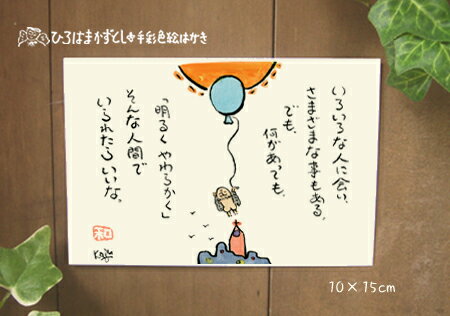 ひろはまかずとし手彩色絵はがき
いろいろな人に会い、
さまざまな事もある。
でも、
何があっても、
「明るく やわらかく」
そんな人間で
いられたらいいな。
和
Kazu
10×15cm